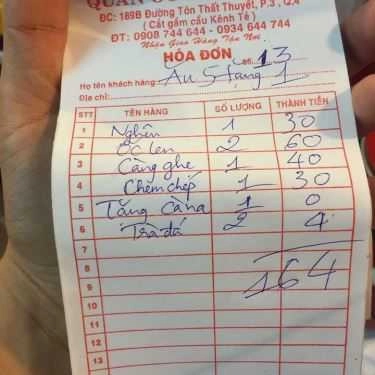 QUÁN
ĐC: 189B Đường Tôn Thất Thuyết, P.3, Q.4
( Cát gầm cầu Kênh Tẻ )
ĐT: 0908 744 644 - 0934 644 744
Nhận Giao Hàng Tận Nơi
HÓA ĐƠN Số: 13
Họ tên khách hàng:
Địa chỉ:
STT TÊN HÀNG SỐ LƯỢNG THÀNH TIỀN
1 Nghêu 1 30
2 Ốc len 2 60
3 Càng ghẹ 1 40
4 Chem chép 1 30
5 Tặng Càna 1 0
6 Trà đá 2 4
7
8 164
9
10
11
12
13